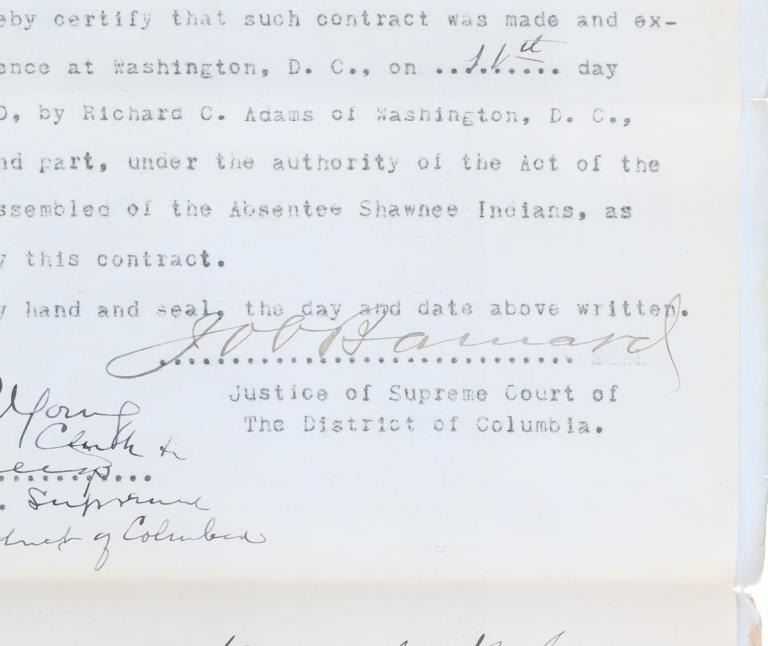 eby certify that such contract was made and ex-
ence at Washington, D. C., on ..11th.... day
0, by Richard C. Adams of Washington, D. C.,
nd part, under the authority of the Act of the
ssembled of the Absentee Shawnee Indians, as
y this contract.
y hand and seal, the day and date above written.
Job Barnard
Justice of Supreme Court of
The District of Columbia.
Young
Clerk
Supreme
of Columbia